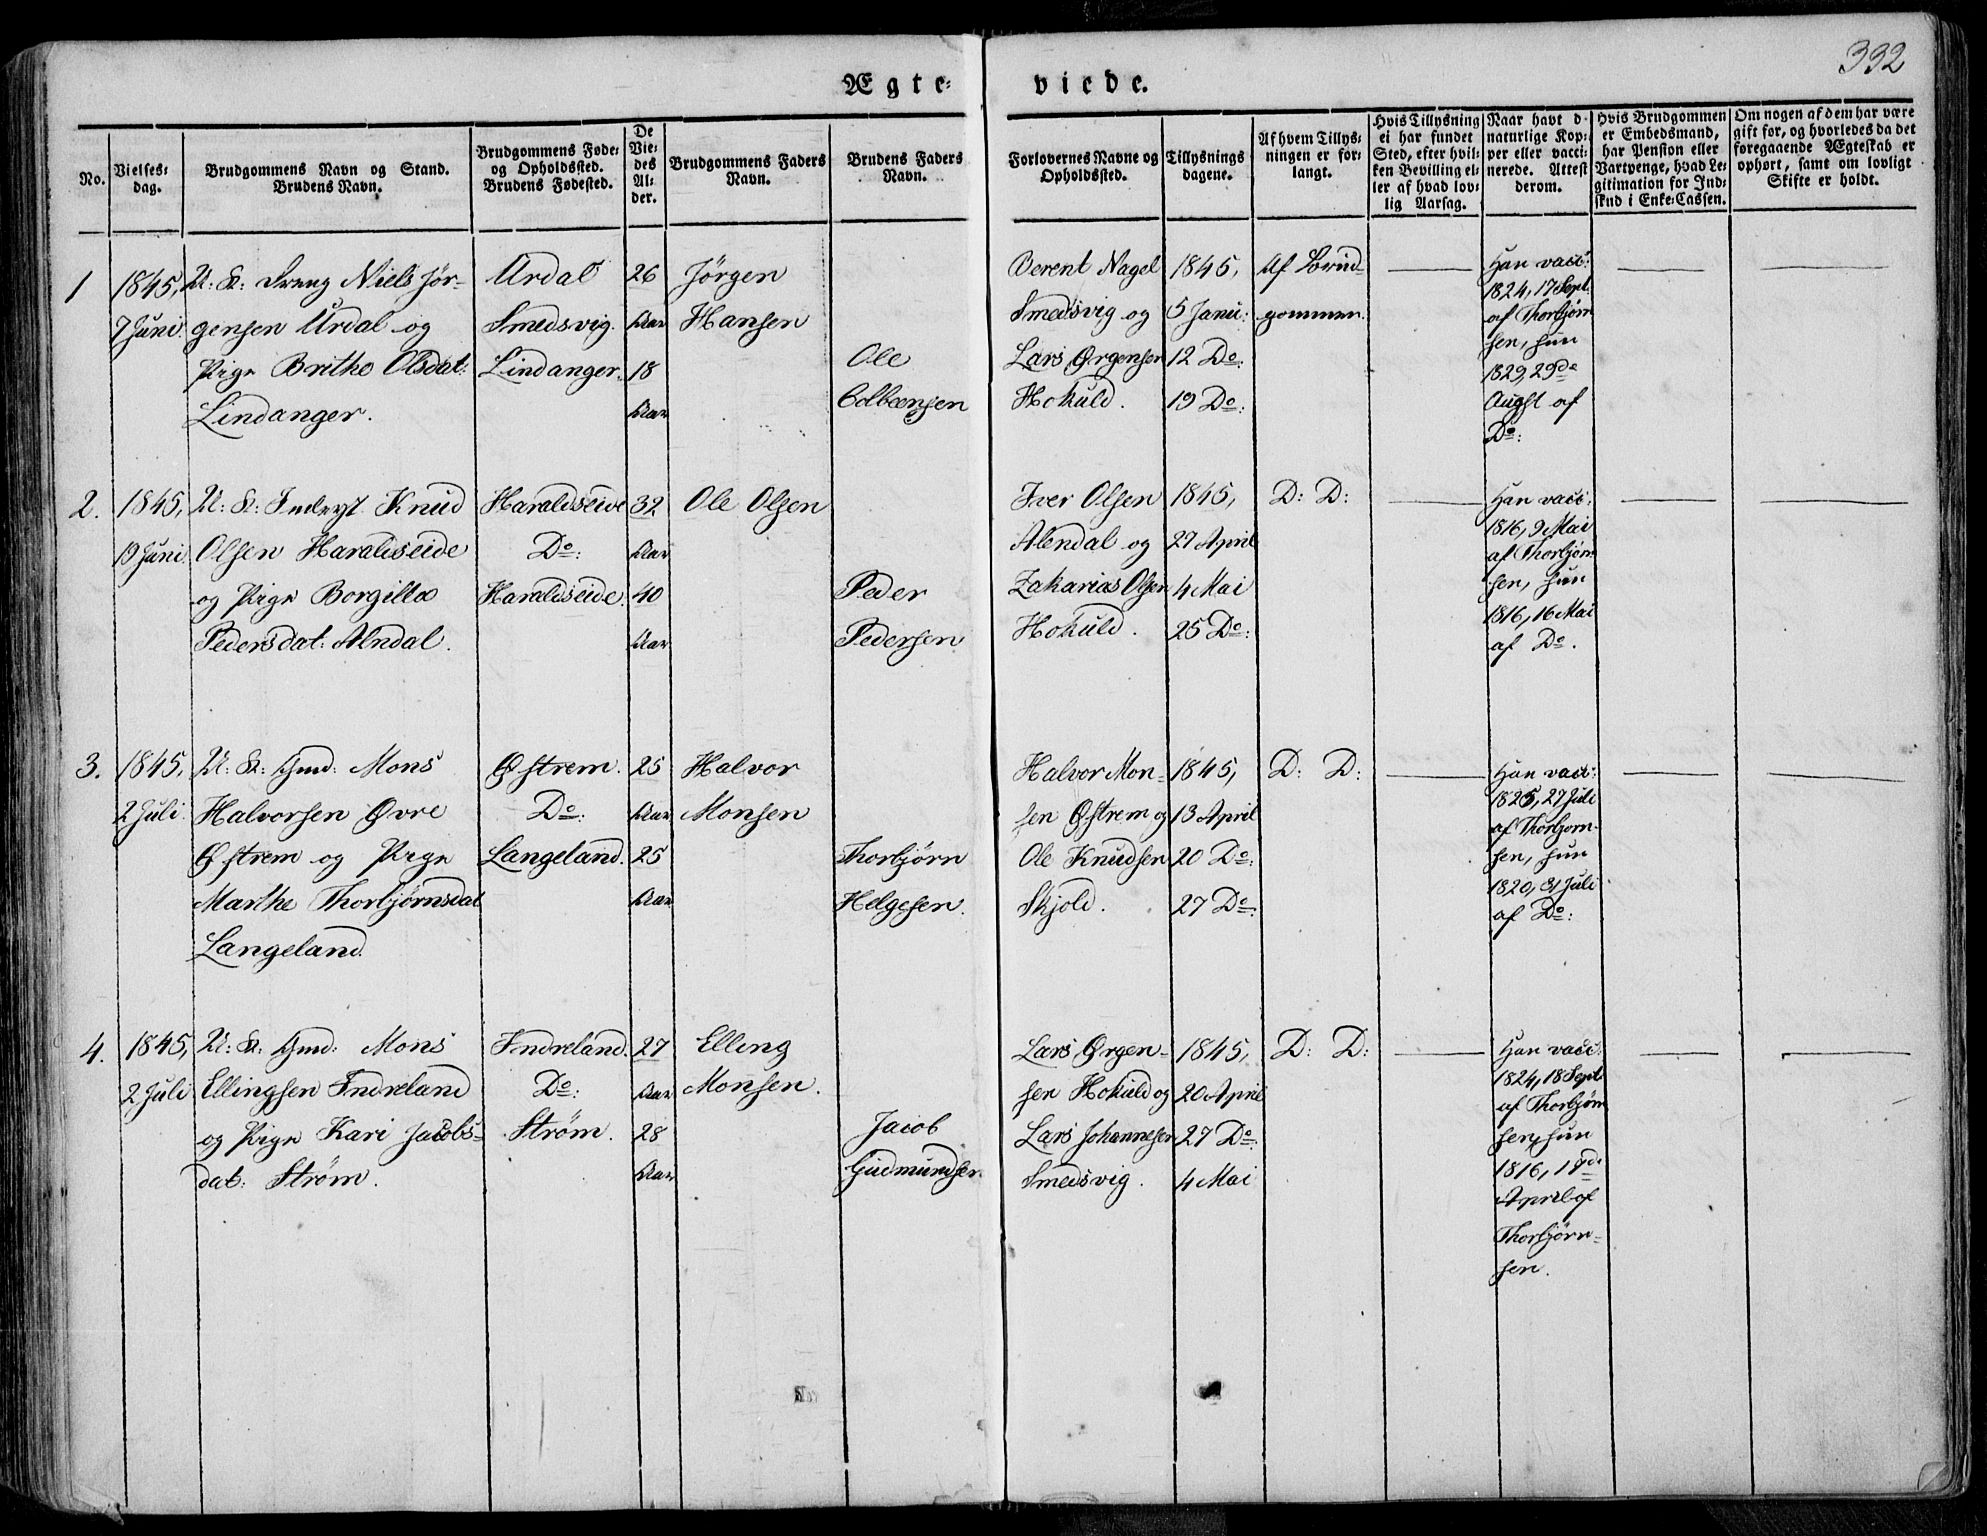 332
Ægte= viede.
No.
Vielses=
dag.
Brudgommens Navn og Stand.
Brudens Navn.
Brudgommens Føde=
og Opholdssted.
Brudens Fødested.
De
Vie=
des
Al=
der.
Brudgommens Faders
Navn.
Brudens Faders
Navn.
Forlovernes Navne og
Opholdssted.
Tillysnings
dagene.
Af hvem Tillys=
ningen er for=
langt.
Hvis Tillysning
ei har fundet
Sted, efter hvil=
ken Bevilling el=
ler af hvad lov=
lig Aarsag.
Naar havt d
naturlige Kop=
per eller vacci=
nerede. Attest
derom.
Hvis Brudgommen
er Embedsmand,
har Pension eller
Vartpenge, hvad Le=
gitimation for Ind=
skud i Enke=Cassen.
Om nogen af dem har være
gift før, og hvorledes da det
foregaaende Ægteskab er
ophørt, samt om lovligt
Skifte er holdt.
1
1845,
7 Juni.
U: K: Dreng Niels Jør-
gensen Urdal og
Pige Brithe Olsdat:
Lindanger.
Urdal
Smedsvig.
Lindanger.
26
Aar
18
Aar
Jørgen
Hansen
Ole
Colbensen
Berent Nagel
Smedsvig og
Lars Ørgensen
Hokuld.
1845,
5 Janu:
12 Do:
19 Do:
Af Brud-
gommen.
Han vacc:
1824, 17 Sept.
af Thorbjørn
sen, hun
1829, 29de
Augst af
Do:
2.
1845,
19 Juni.
U: K: Inderst Knud
Olsen Haraldseide
og Pige Borgilla
Pedersdat: Alndal.
Haraldseide
Do:
Haraldseide.
32
Aar
40
Aar
Ole Olsen
Peder
Pedersen
Iver Olsen
Alendal og
Zakarias Olsen
Hokuld.
1845,
27 April
4 Mai
25 Do:
D: D:
Han vacc:
1816, 9 Mai
af Thorbjørn
sen, hun
1816, 16 Mai
af Do.
3.
1845,
2 Juli.
U: K: Gmd: Mons
Halvorsen Øvre
Østrem og Pige
Marthe Thorbjørnsdat
Langeland.
Østrem.
Do:
Langeland.
25
Aar
25
Aar
Halvor
Monsen
Thorbjørn
Helgesen.
Halvor Mon-
sen Østrem og
Ole Knudsen
Skjold.
1845,
13 April
20 Do:
27 Do:
D: D:
Han vacc:
1825, 27 Juli
af Thorbjørn-
sen, hun
1820, 31 Juli
af Do:
4.
1845,
2 Juli
U: K: Gmd: Mons
Ellingsen Indreland
og Pige Kari Jacobs-
dat: Strøm.
Indreland.
Do:
Strøm.
27
Aar
28
Aar
Elling
Monsen.
Jacob
Gudmundsen
Lars Ørgen-
sen Hokuld og
Lars Johannesen
Smedsvig.
1845,
20 April
27 Do:
4 Mai
D: D:
Han vacc:
1824, 18 Sept
af Thorbjørn
sen, hun
1816, 18de
April af
Thorbjørn-
sen.